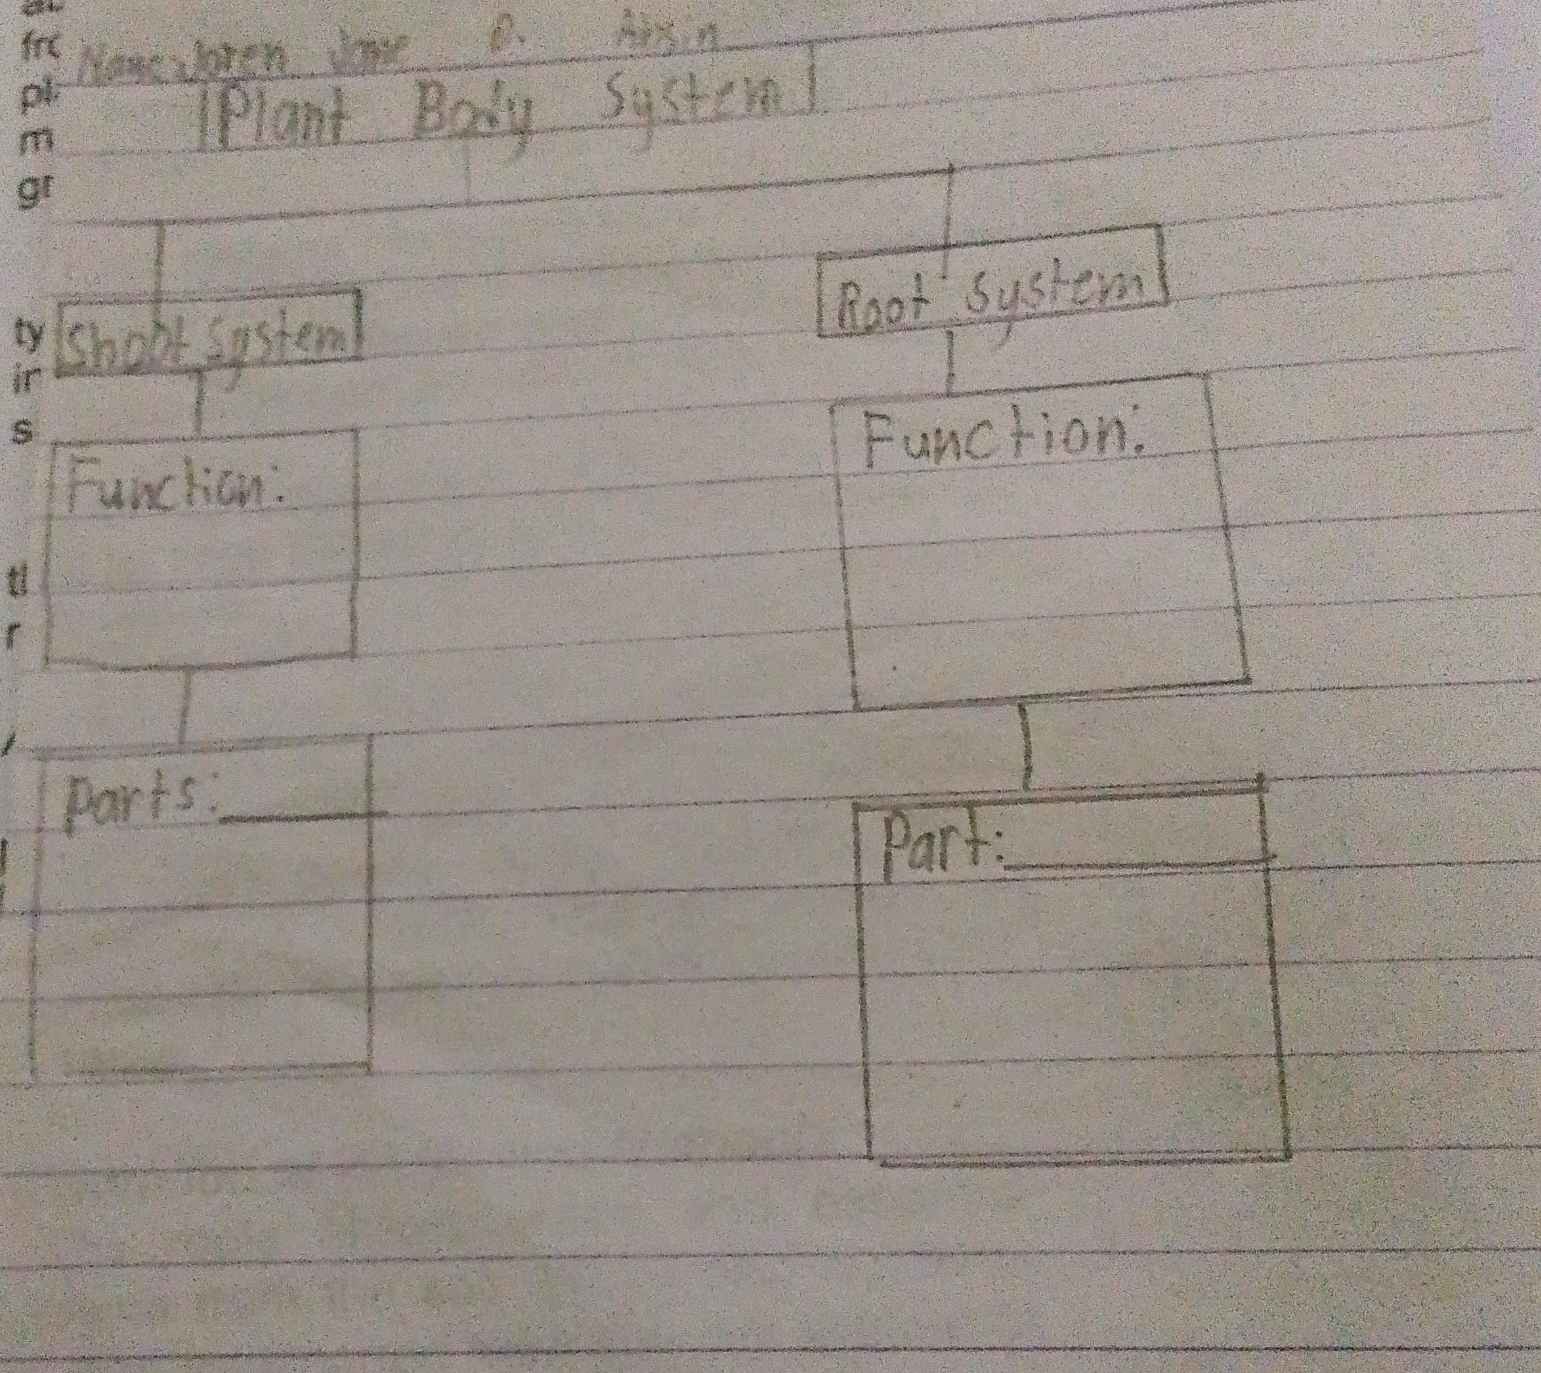 Name:
Plant Body System
Shoot System
Root System
Function:
Function:
parts:
Part:
frc
pl
m
gr
ty
ir
s
tl
r